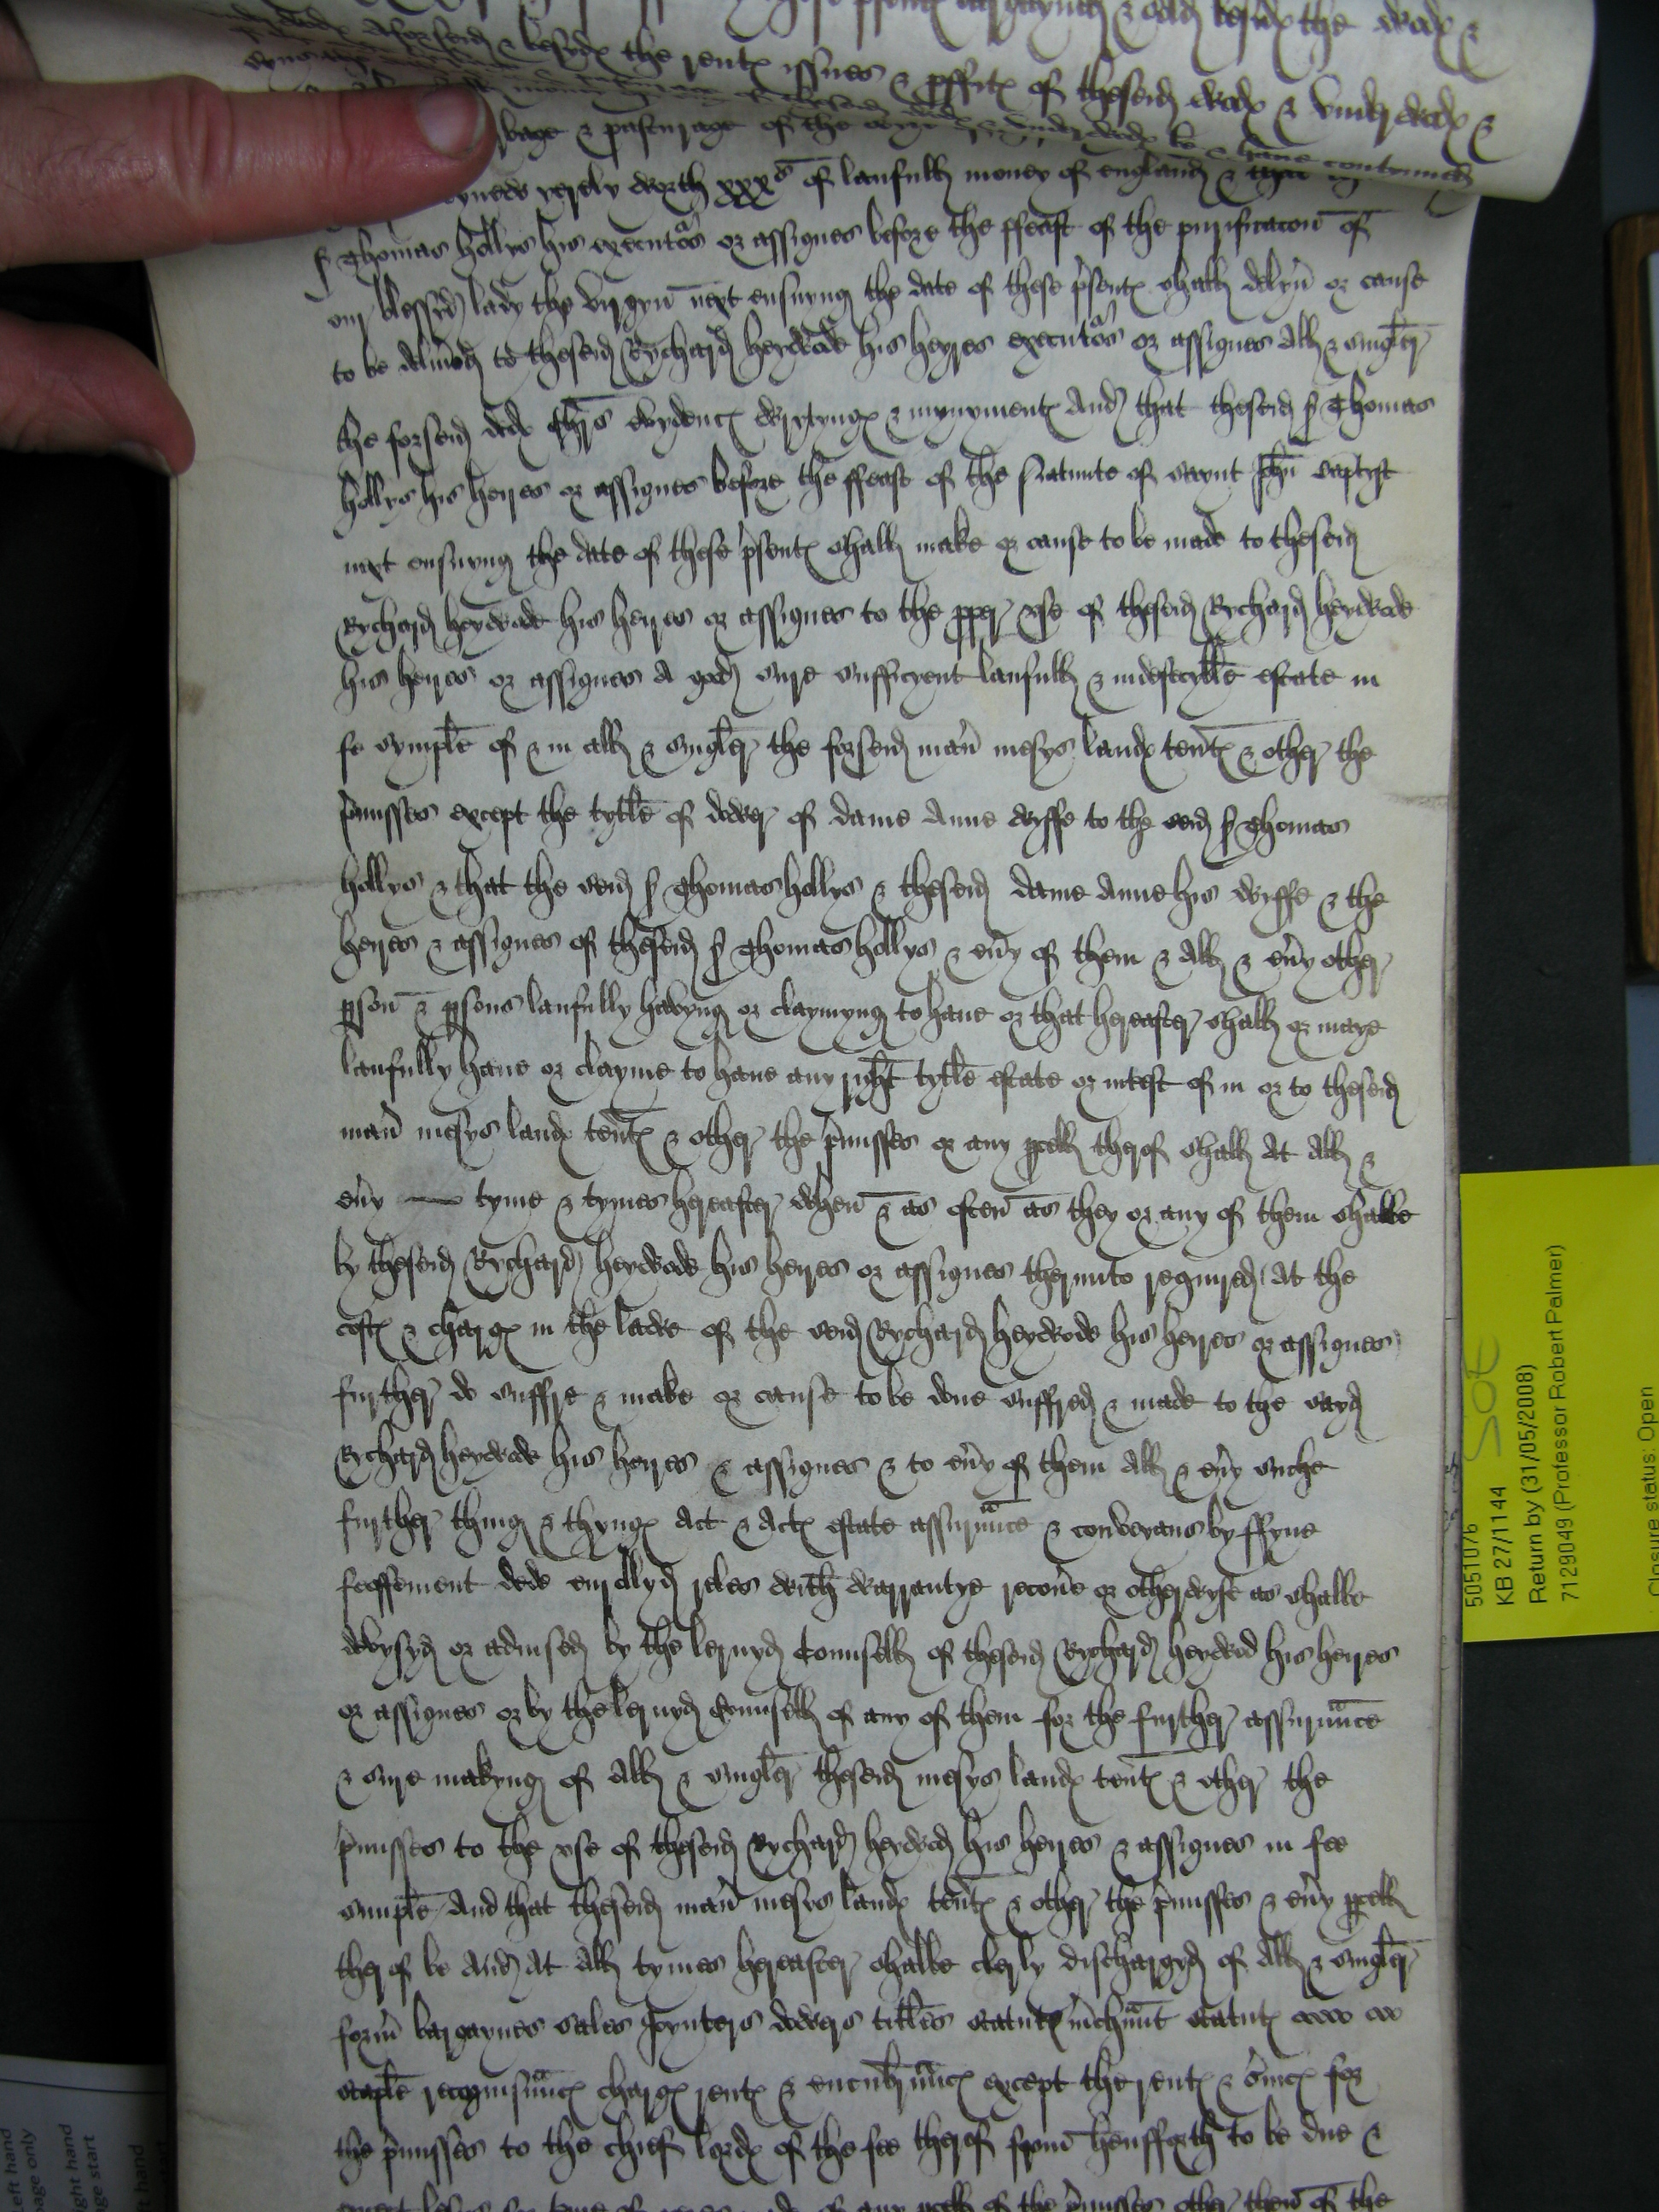 the wode &
aforseid & besyde the rente issues & pffite of theseid wode & vnderwode &
bage & pasturage of the
yerely worth xxxs of laufull money of england & that
sr Thomas hollys his executors or assignes before the ffeast of the purificacon of
our blessyd lady the virgyn next ensuyng the date of these psente shall delyu or cause
to be delyued to theseid Rychard heywode his heyres executors or assignes all & singler
the forseid dede chrs evydence wrytynge & mynymente And that theseid sr Thomas
hollys his heires or assignes before the ffeast of the Natiuite of saynt John baptyst
next ensuyng the date of these psente shall make or cause to be made to theseid
Rychard heywode his heires or assignes to the pper vse of theseid Rychard heywode
his heires or assignes A good sure sufficyent laufull & indefecyble estate in
fe symple of & in all & singler the forseid man mesys lande tente & other the
pmisses except the tytle of dower of dame Anne wyffe to the seid sr Thomas
hollys & that the seid sr Thomas hollys & theseid dame Anne his wyffe & the
heires & assignes of theseid sr Thomas hollys & eu'y of them & All & eu'y other
pson & psons laufully havyng or claymyng to haue or that hereafter shall or maye
laufully haue or clayme to haue any right tytle estate or intest of in or to theseid
man mesys lande tente & other the pmisses or any pcell therof shall At All &
eu'y tyme & tymes hereafter when & as often as they or any of them shalbe
by theseid Rychard heywode his heires or assignes therunto requyred At the
coste & charge in the lawe of the seid Rychard heywode his heires or assignes
further do suffre & make or cause to be done suffred & made to the sayd
Rychard heywode his heires & assignes & to eu'y of them All & eu'y suche
further thing & thynge Act & Acte estate assuraunce & conveyans by ffyne
feoffement dede enrollyd reles with warrantye recou'e or otherwyse as shalbe
devysyd or advised by the lernyd Counsell of theseid Rychard heywod his heires
or assignes or by the lernyd counsell of any of them for the further assuraunce
& sure makyng of All & singler theseid mesys lande tente & other the
pmisses to the vse of theseid Rychard heywod his heires & assignes in fee
simple And that theseid man mesys lande tente & other the pmisses & eu'y pcell
therof be And At All tymes hereafter shalbe clerly dischargyd of All & singler
form bargaynes sales Joynters dowers titles statute mchaunt statute
staple recognisaunce charge rente & encumbraunce except the rente & suice for
the pmisses to the chief lorde of the fee therof from hensfforth to be due &
of any pcell of the pmisses other then of the
5051076
SOE
KB 27/1144
Return by (31/05/2008)
7129049 (Professor Robert Palmer)
Closure status: Open